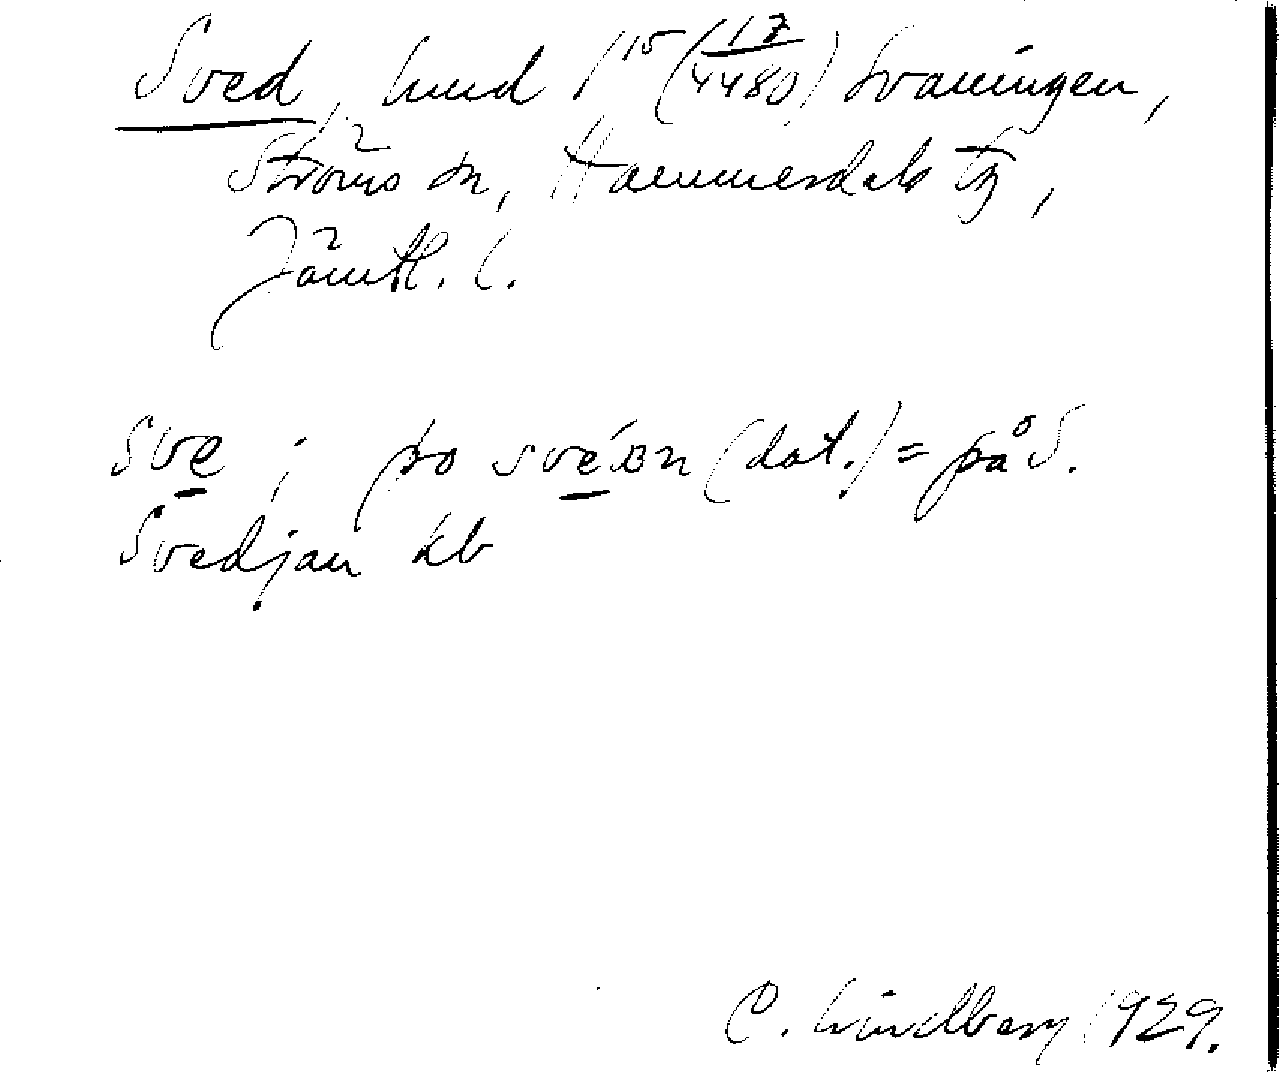 Sved, hmd 1¹⁵ (17/4480) Svaningen,
Ströms sn, Hammerdals tg,
Jämtl. l.
sve ; po svéɒn (dat.) = på S.
Svedjan kb
C. Lindberg 1929.